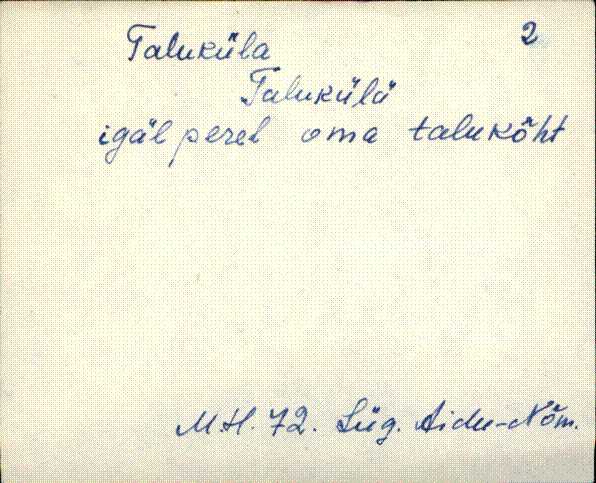 2
Taluküla
Talukülä
igäl perel oma talukõht
M.H. 72. Lüg. Aidu-Nõm.